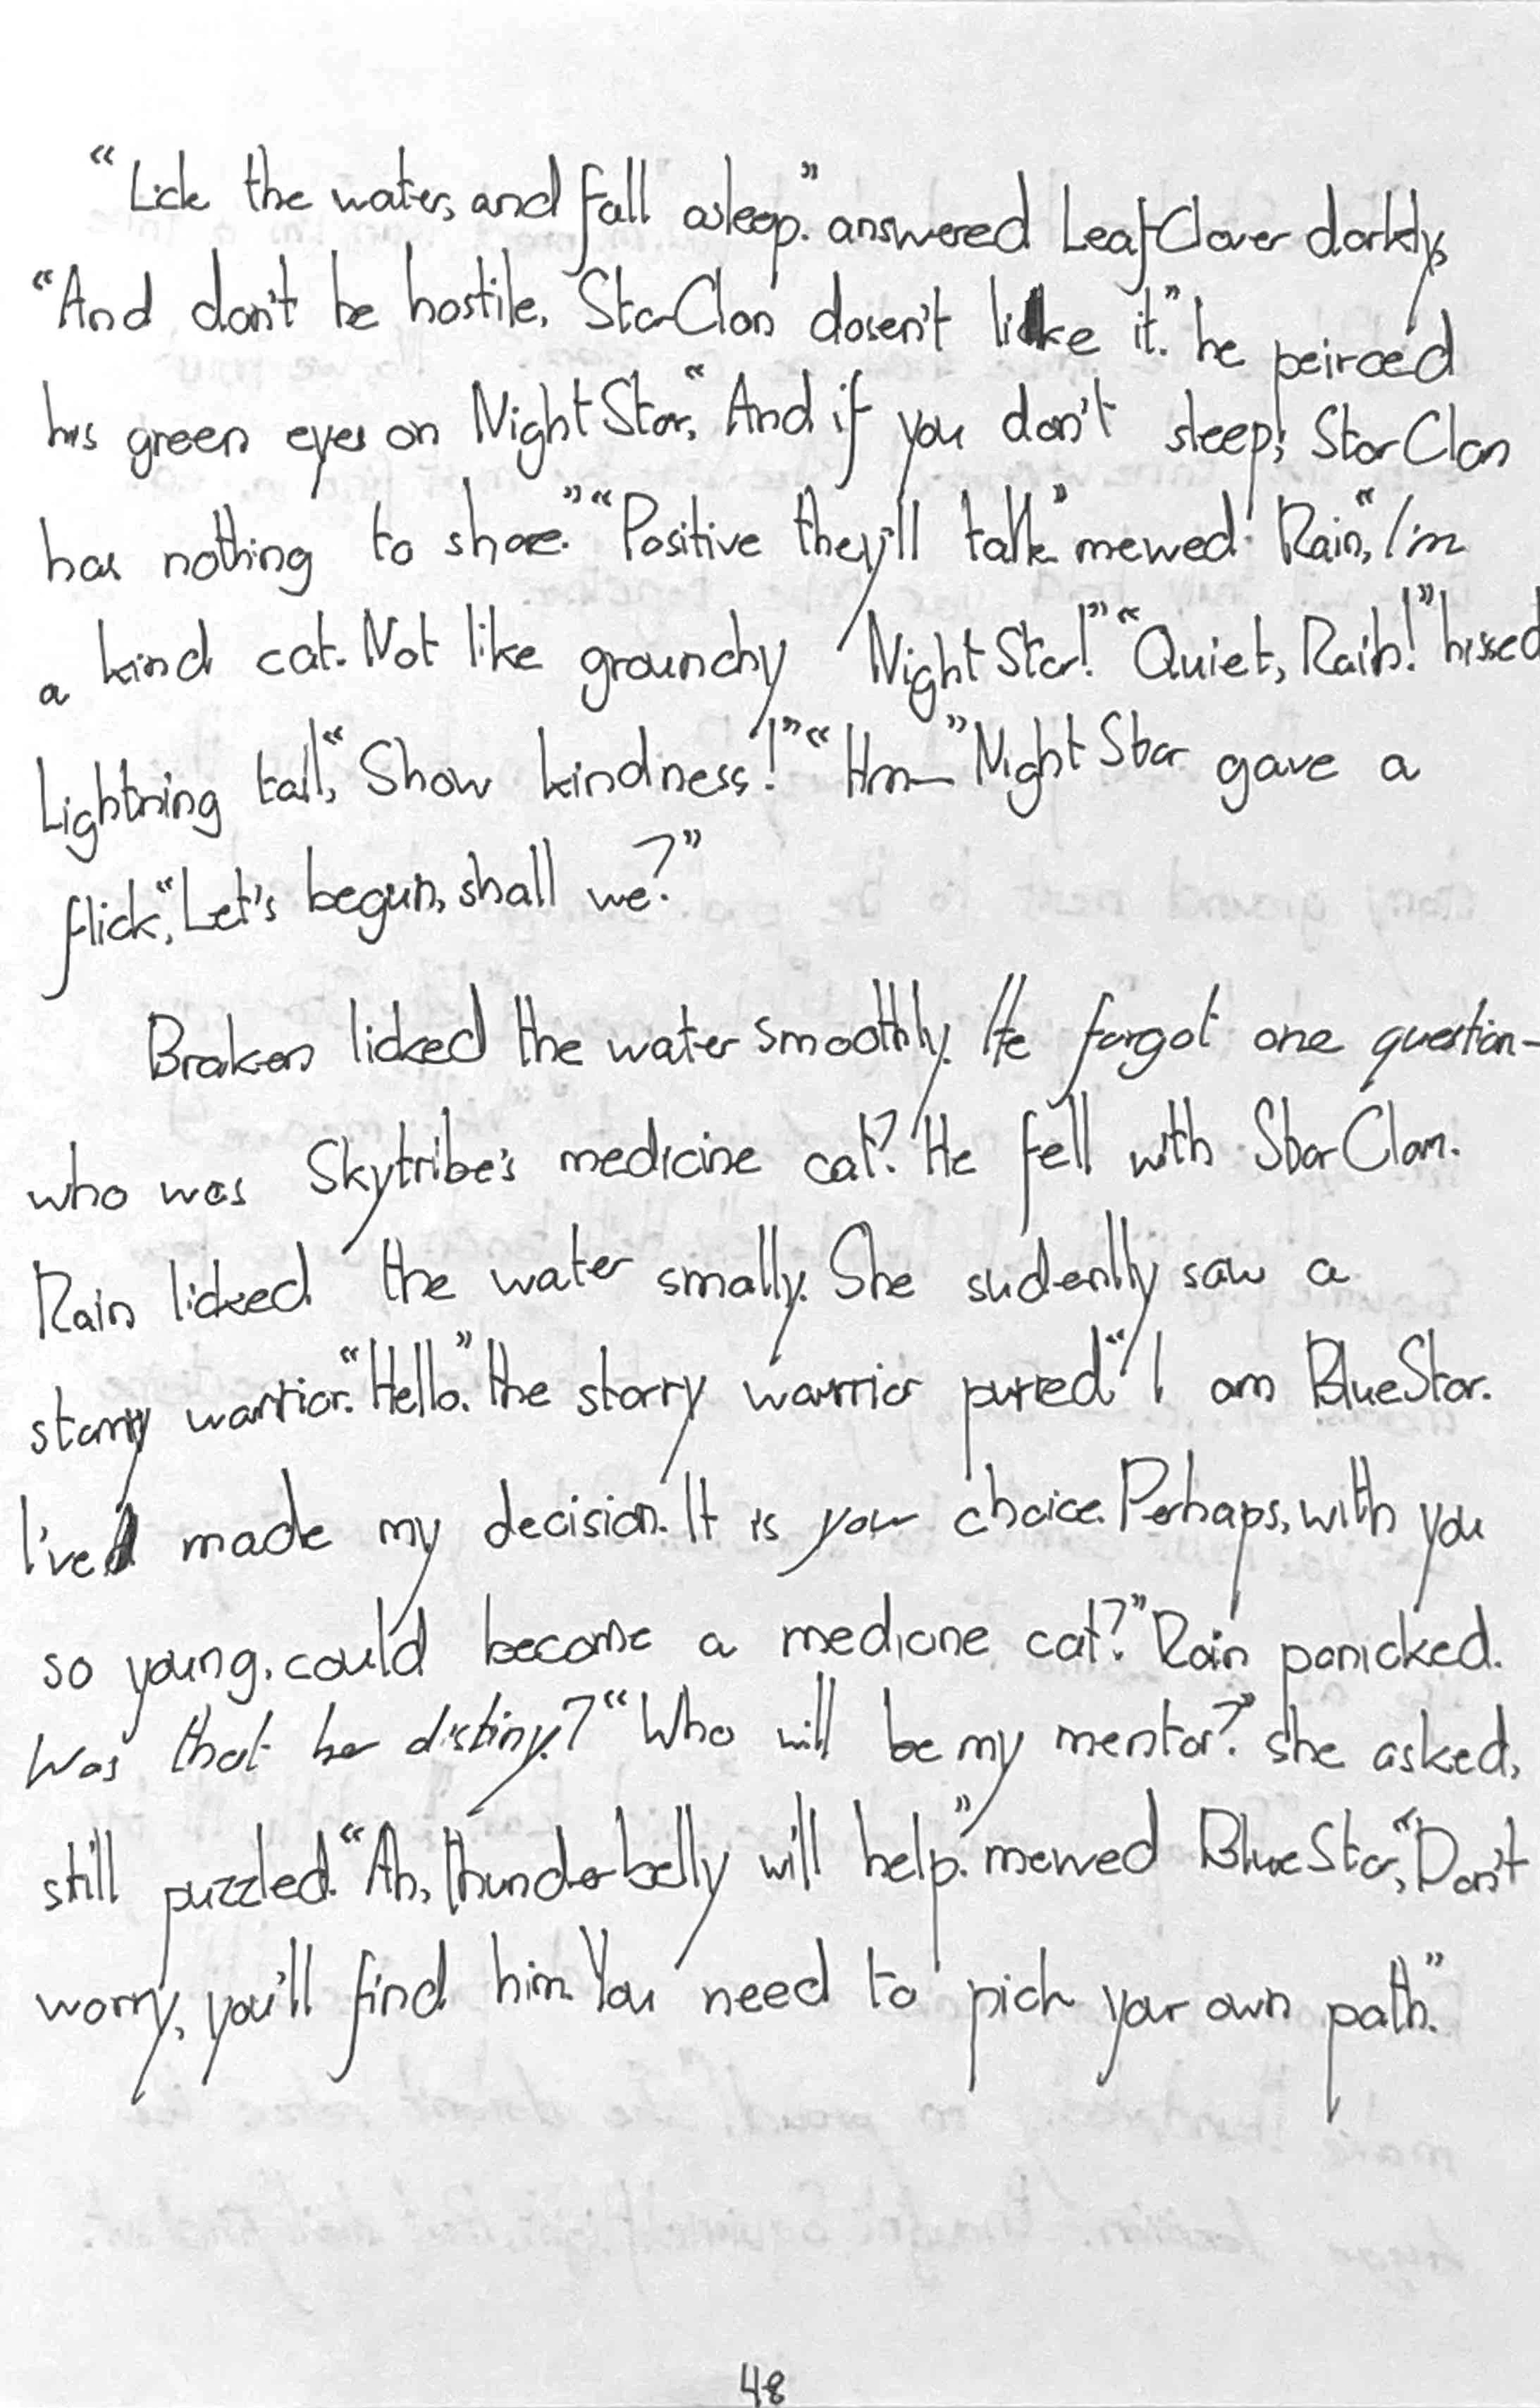 “Lick the water, and fall asleep.” answered LeafClover darkly,
“And don't be hostile, StarClan dosen't like it.” he peirced
his green eyes on NightStar, “And if you don't sleep, StarClan
has nothing to share.” “Positive they'll talk” mewed Rain, “I'm
a kind cat. Not like grounchy NightStar!” “Quiet, Rain!” hissed
Lightning tail, “Show kindness!” “Hm—” NightStar gave a
flick, “Let's begun, shall we?”
Braken licked the water smoothly. He forgot one question-
who was Skytribe's medicine cat? He fell with StarClan.
Rain licked the water smally. She sudenlly saw a
starry warrior. “Hello.” the starry warrior purred “I am BlueStar.
I've made my decision. It is your choice. Perhaps, with you
so young, could become a medicine cat?” Rain panicked.
Was that her distiny? “Who will be my mentor?” she asked,
still puzzled. “Ah, thunderbelly will help.” mewed BlueStar, “Don't
worry, you'll find him. You need to pick your own path.”
48